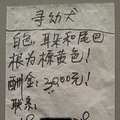 寻幼犬
白色，耳朵和尾巴
根为棕黄色！
酬金：3000元！
联系：